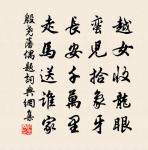 越女收龍眼
蠻兒拾象牙
長安千萬里
走馬送誰家
殷堯藩偶題詞典網集